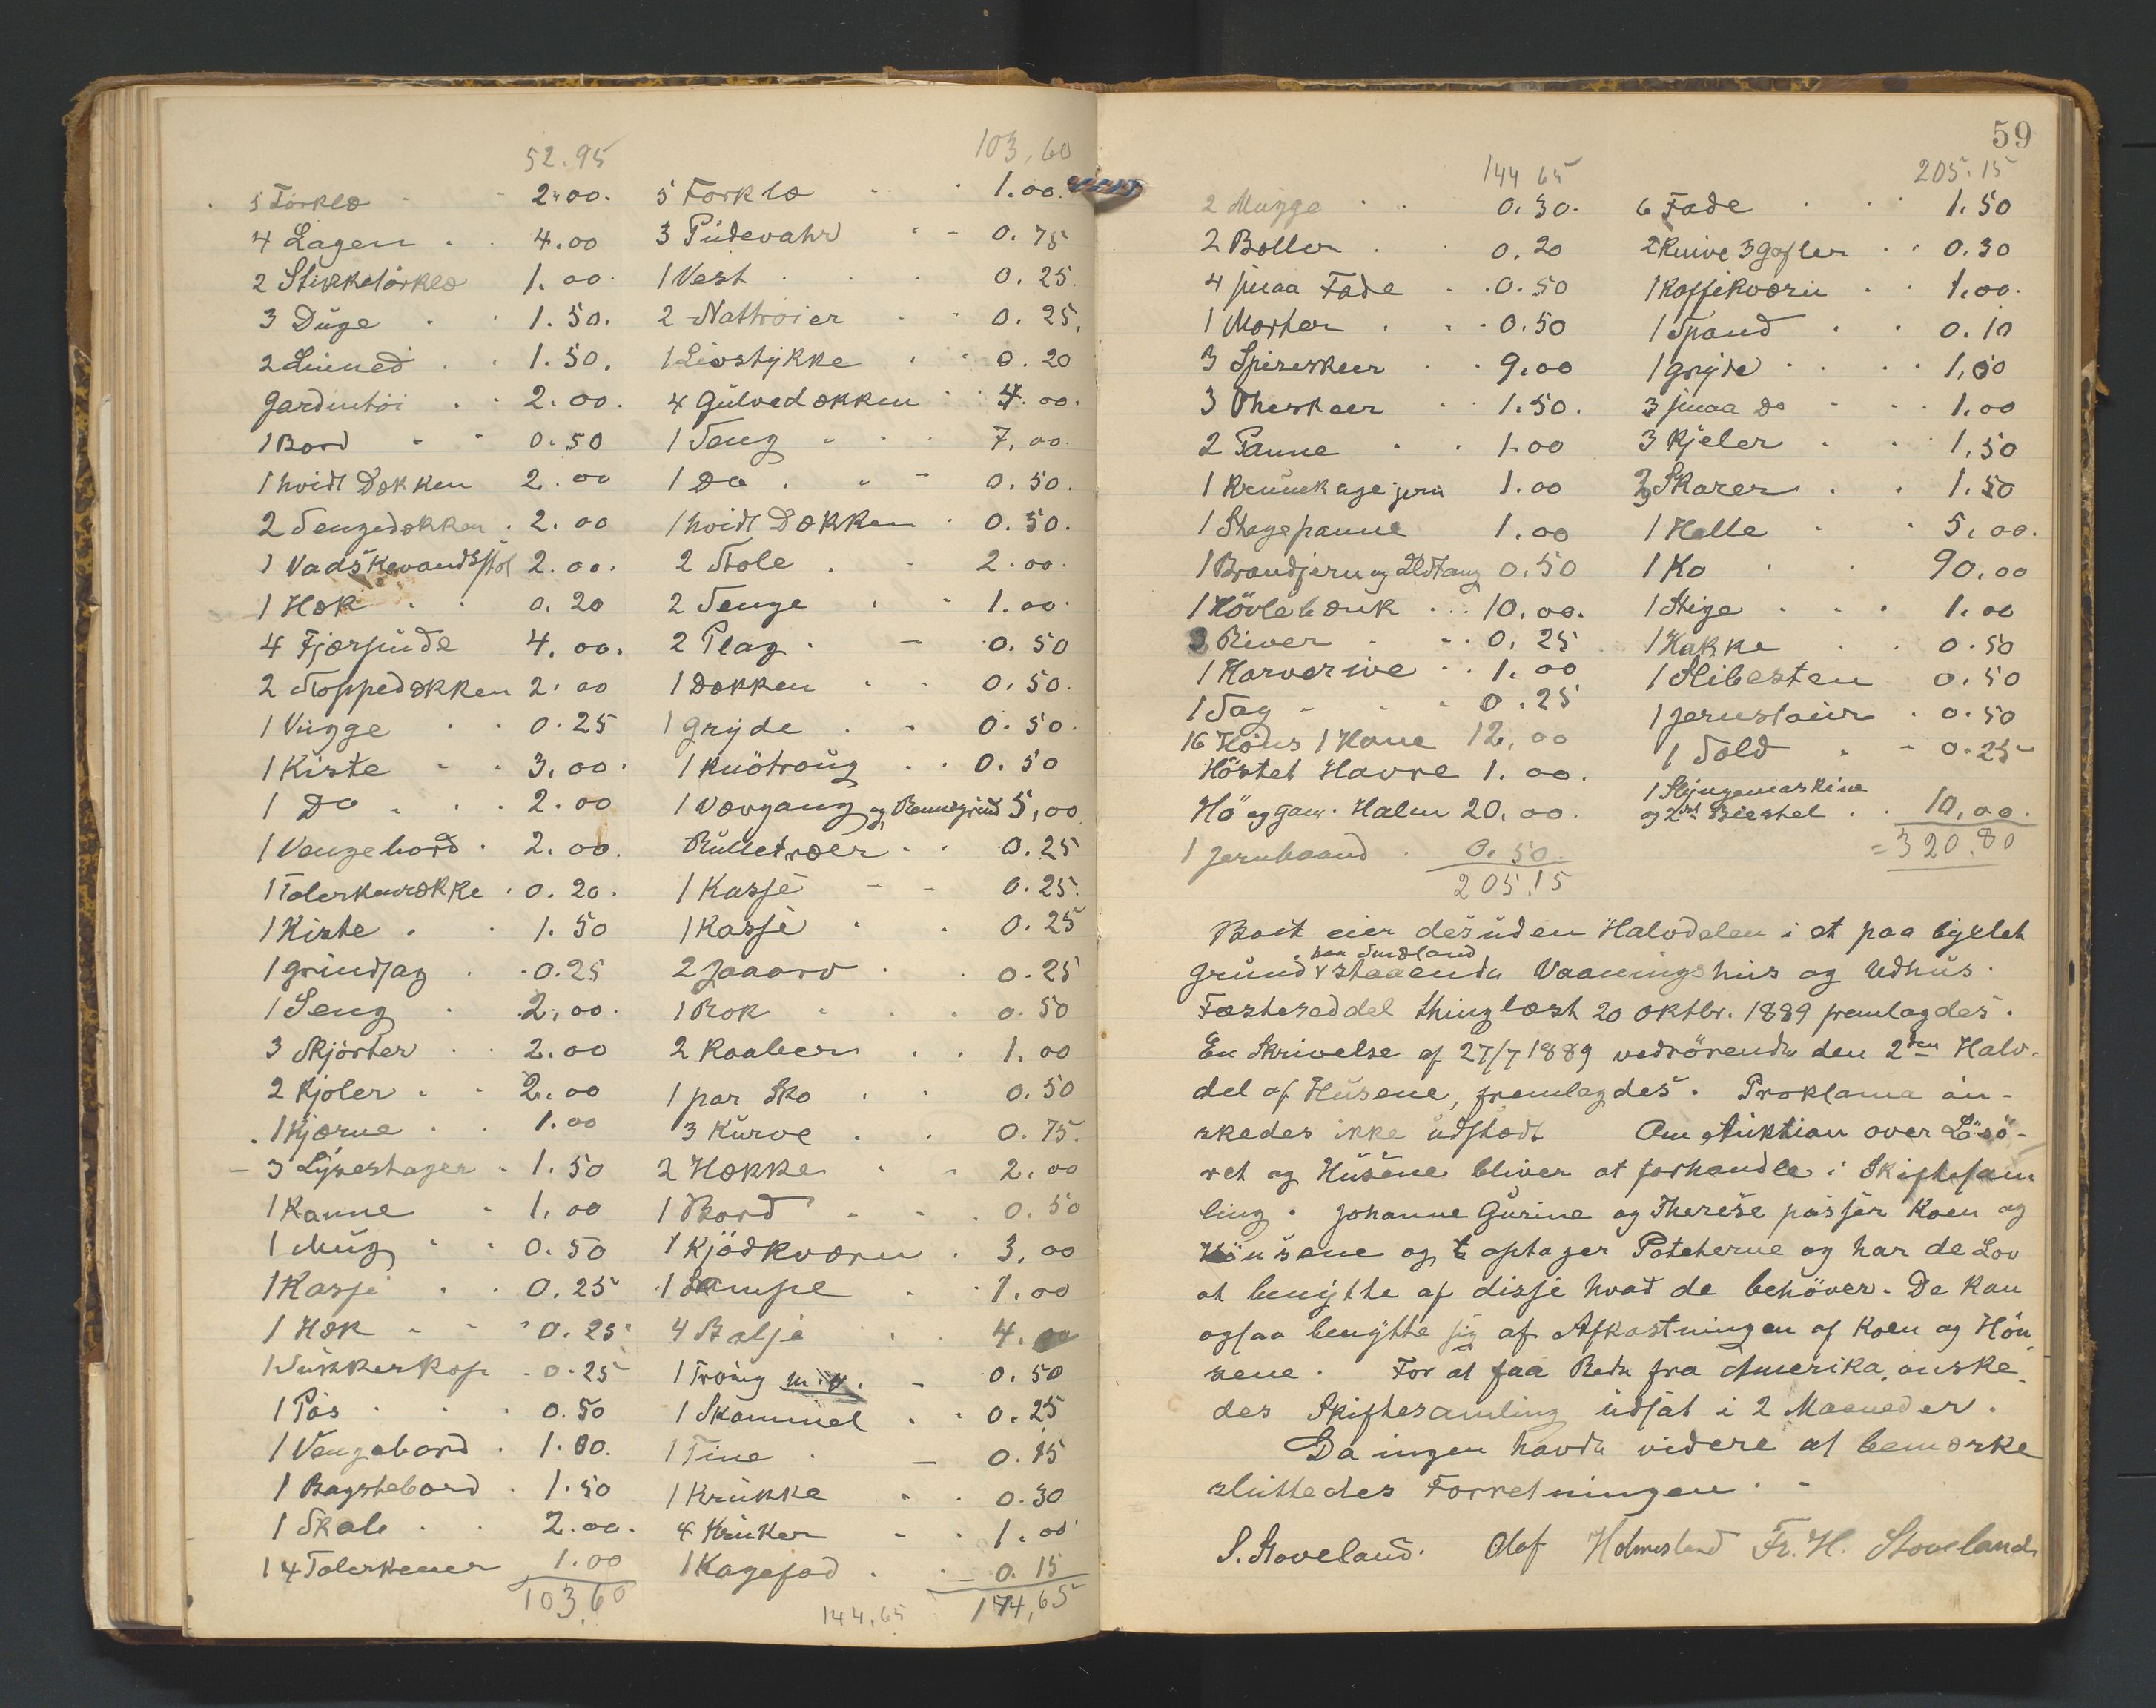 52.95
5 Törklæ - 2.00.
4 Lagen . . 4.00
2 Stikkelörklæ 1.00.
3 Duge . . 1.50.
2 Linned . . 1.50.
Gardintöi . . 2.00.
1 Bord - - 0.50
1 hvidt Dækken 2.00
2 Sengedækken . 2.00
1 Vadskevandsstol 2.00.
1 Hæk . . 0.20
4 Fjærpude 4.00.
2 Stoppedækken 2.00
1 Vugge . . 0.25
1 Kiste - - 3.00.
1 Do . . . 2.00
1 Vengebord . 2.00.
1 Tolerkenrække . 0.20.
1 Kiste . . 1.50
1 Grindsag . . 0.25
1 Seng . 2.00.
3 Skjörter . . 2.00
2 Kjoler . - 2.00
1 Kjærne . . 1.00
3 Lysestager - 1.50
1 Kanne - 1.00
1 Mug - - 0.50
1 Kasse . . 0.25
1 Hæk - - 0.25
1 Sukkerkop . 0.25
1 Pös . . . 0.50
1 Vengebord . 1.00.
1 Bagstebord . 1.50
1 Skab . . 2.00.
14 Tolerkener 1.00
103,60
103,60
5 Forklæ - . 1.00.
3 Pudevahr . - 0.75
1 Vest . . . 0.25.
2 Nattröier . - 0.25,
1 Livstykke . . 0.20
4 Gulvedækken . . 4.00.
1 Seng - . . 7.00.
1 Do . - - 0.50.
1 hvidt Dækken . 0.50.
2 Stole . - 2.00.
2 Senge . - 1.00.
2 Plag . - 0.50
1 Dækken . . 0.50.
1 Gryde . . 0.50.
1 Knötroug . . 0.50
1 Vævgang og Rennegrind 5,00
Rulletræer . . 0.25
1 Kasse - - 0.25.
1 Kasse . . 0.25
2 Jaaarv . . 0.25
1 Rok - . . 0.50
2 Kaaber . . 1.00
1 par Sko . . 0.50
3 Kurve . . 0.75.
2 Hække . - 2.00
1 Bord - - . 0.50
1 Kjödkværn . 3,00
1 Lampe . . 1.00
4 Balje . . 4.00
1 Tröug m.v. - 0.50
1 Skammel . . 0.25
1 Tine . - 0.15
1 Krukke . . 0.30
4 Kruker - . 1.00
1 Kagefad . - 0.15
144.65 174,65
59
144 65
2 Mugge . . 0.30.
2 Boller . . 0.20
4 smaa Fade . . 0.50
1 Morter . . . 0.50
3 Spiseskeer . . 9.00
3 Theskeer . 1.50.
2 Panne . . 1.00
1 Krumkagejern 1.00
1 Stegepanne 1.00
1 Brandjern og Ildtang 0.50
1 Hövlebænk . . . 10.00.
3 River . . . 0.25
1 Harverive . . 1.00
1 Sag - - - 0.25
16 Höns 1 Hane 12,00
Höstet Havre 1.00.
Hö og gam. Halm 20.00.
1 Jernbaand . 0.50.
205.15
205.15
6 Fade . . . 1.50
2 Knive 3 Gafler . . 0.30
1 Kaffekværn . . 1.00.
1 Spand . . 0.10
1 Gryde . . . . 1,00
3 smaa Do - - . 1.00
3 Kjeler . . 1,50
3 Skarer . . 1.50
1 Helle . . 5.00.
1 Ko . . 90.00
1 Stige . . . 1.00
1 Hakke . . 0.50
1 Slibesten 0.50
1 Jernstaur . 0.50
1 Sold . - 0.25
1 Slyngemaskine
og 2det Biestel . . 10,00.
=320.80
Boet eier desuden Halvdelen i et paa byxlet
paa Smedland
Grund v staaende Vaaningshus og Udhus.
Fæsteseddel thinglæst 20 Oktbr. 1889 fremlagdes.
En Skrivelse af 27/7 1889 vedrörende den 2den Halv-
del af Husene, fremlagdes. Proklama ön-
skedes ikke udstedt Om Auktion over Lösö-
ret og Husene bliver at forhandle i Skiftesam
ling. Johanne Gurine og Therese passer Koen og
Hönsene og optager Poteterne og har de Lov
at benytte af disse hvad de behöver. De kan
ogsaa benytte sig af Afkastningen af Koen og Hön
sene. For at faa Bud fra Amerika, önske-
des Skiftesamling udsat i 2 Maaneder.
Da ingen havde videre at bemærke
sluttedes Forretningen. -
S. Stoveland. Olaf Holmesland Fr. H. Stoveland